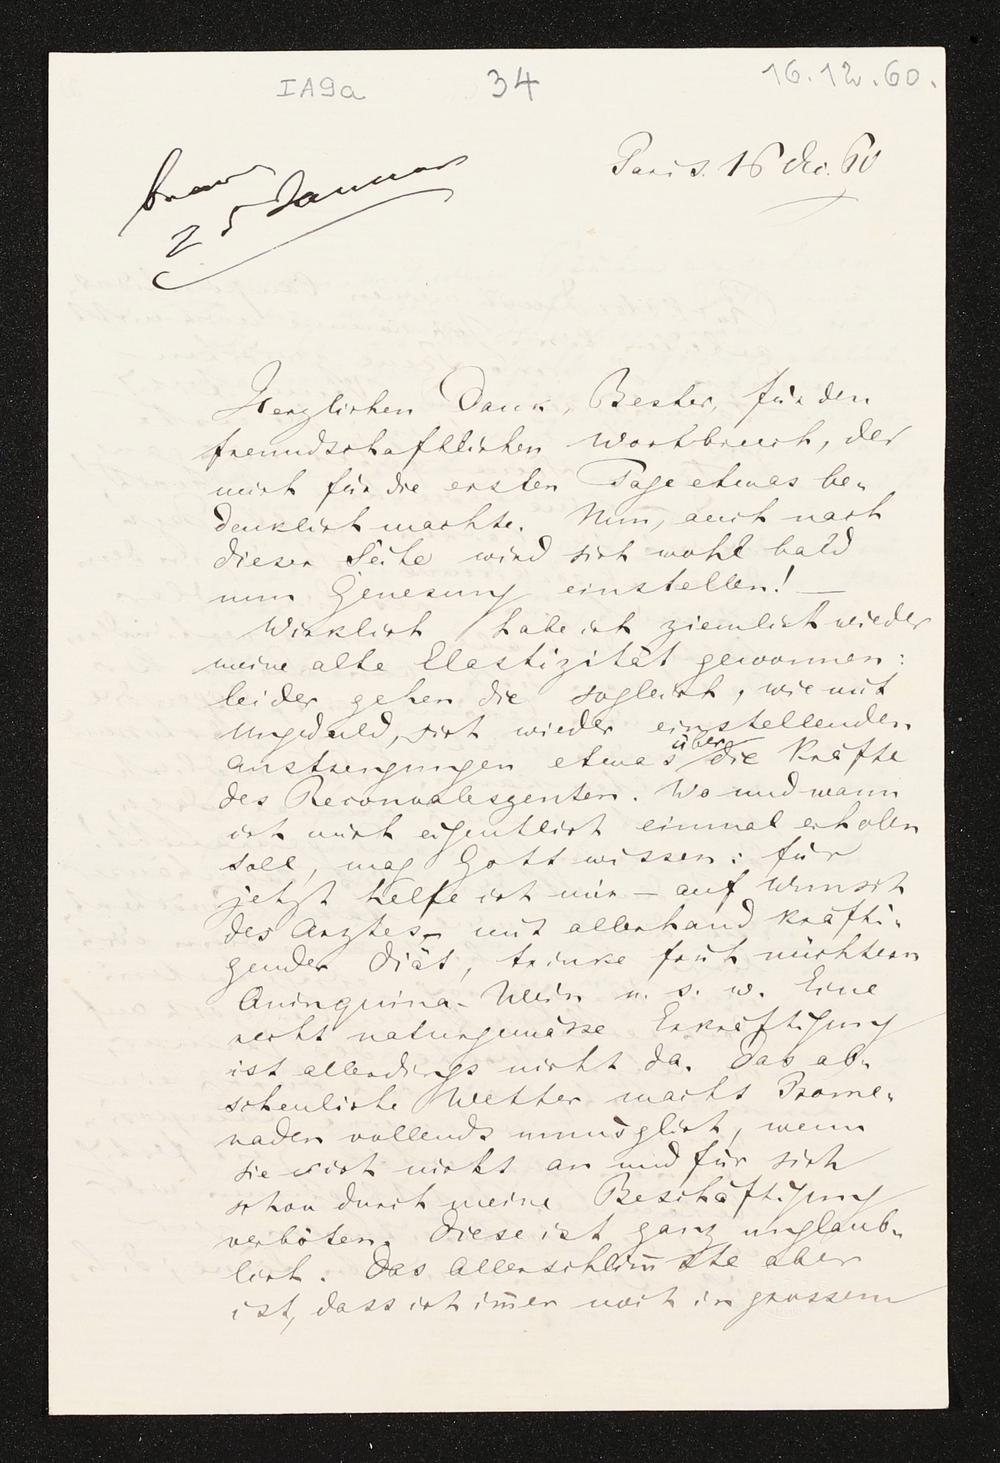 IA9a 34 16.12.60.
Paris. 16 Dec. 60
25 Januar
Herzlichen Dank, Bester, für den
freundschaftlichen Wortbruch, der
mich für die ersten Tage etwas be-
denklich machte. Nun, auch nach
dieser Seite wird sich wohl bald
nun Genesung einstellen! —
Wirklich habe ich ziemlich wieder
meine alte Elastizität gewonnen:
leider gehen die sogleich, wie mit
Ungeduld, sich wieder einstellenden
Anstrengungen etwas über die Kräfte
des Reconvaleszenten. Wo und wann
ich mich eigentlich einmal erholen
soll, mag Gott wissen: für
jetzt helfe ich mir — auf Wunsch
des Arztes — mit allerhand kräfti-
gender Diät, trinke früh nüchtern
Quinquina-Wein u. s. w. Eine
recht naturgemässe Erkräftigung
ist allerdings nicht da. Das ab-
scheuliche Wetter macht Prome-
naden vollends unmöglich, wenn
sie mir nicht an und für sich
schon durch meine Beschäftigung
verböten. Diese ist ganz unglaub-
lich. Das Allerschlim̅ste aber
ist, dass ich im̅er noch in grossem